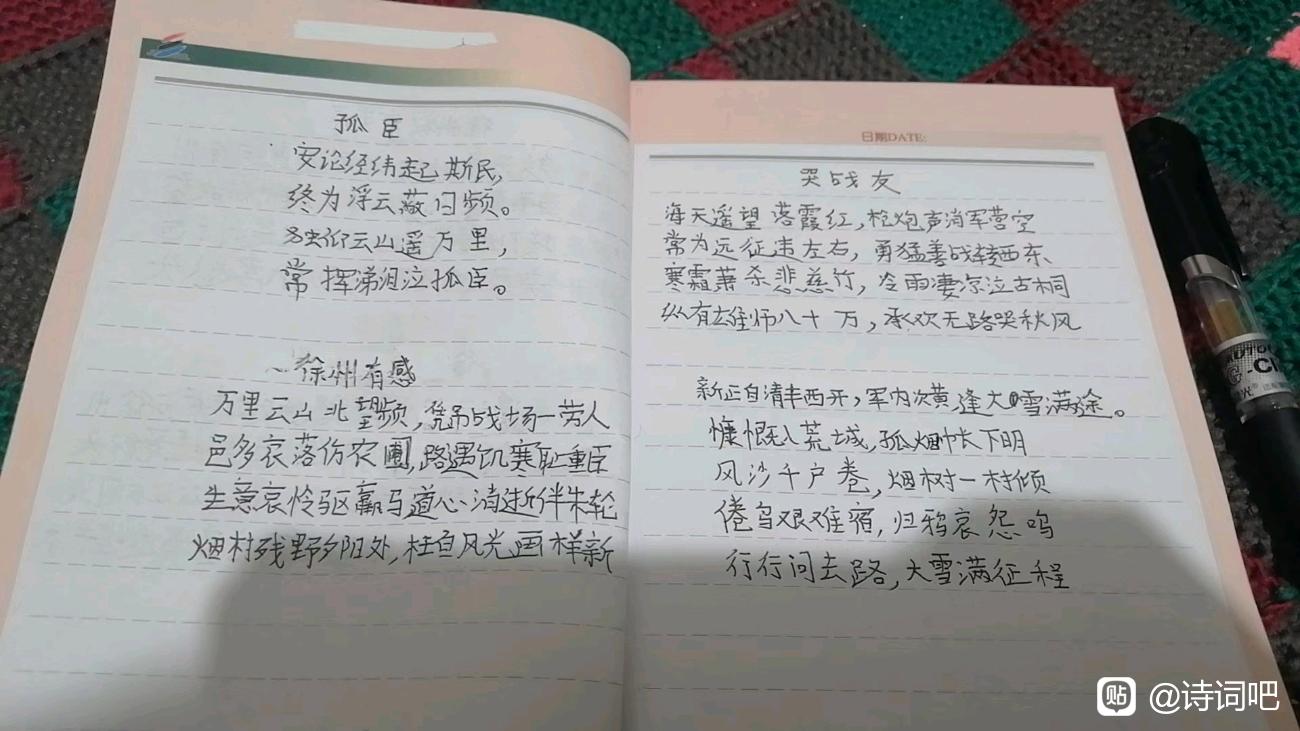 孤臣
安论经纬起斯民，
终为浮云蔽日频。
仰云山遥万里，
常挥涕泪泣孤臣。
徐州有感
万里云山北望频，凭吊战场一劳人
邑多哀落伤农圃，路遇饥寒耻重臣
生意哀怜驱羸马，道心消逝伴朱轮
烟村残野夕阳处，枉自风光画样新
日期DATE:
哭战友
海天遥望落霞红，枪炮声消军营空
常为远征违左右，勇猛善战转西东
寒霜萧杀悲慈竹，冷雨凄凉泣古桐
纵有雄师八十万，承欢无路哭秋风
新正自清丰西开，军内次黄逢大雪满途。
慷慨入荒城，孤烟帐下明
风沙千户卷，烟树一村倾
倦鸟艰难宿，归鸦哀怨鸣
行行问去路，大雪满征程
贴 @诗词吧